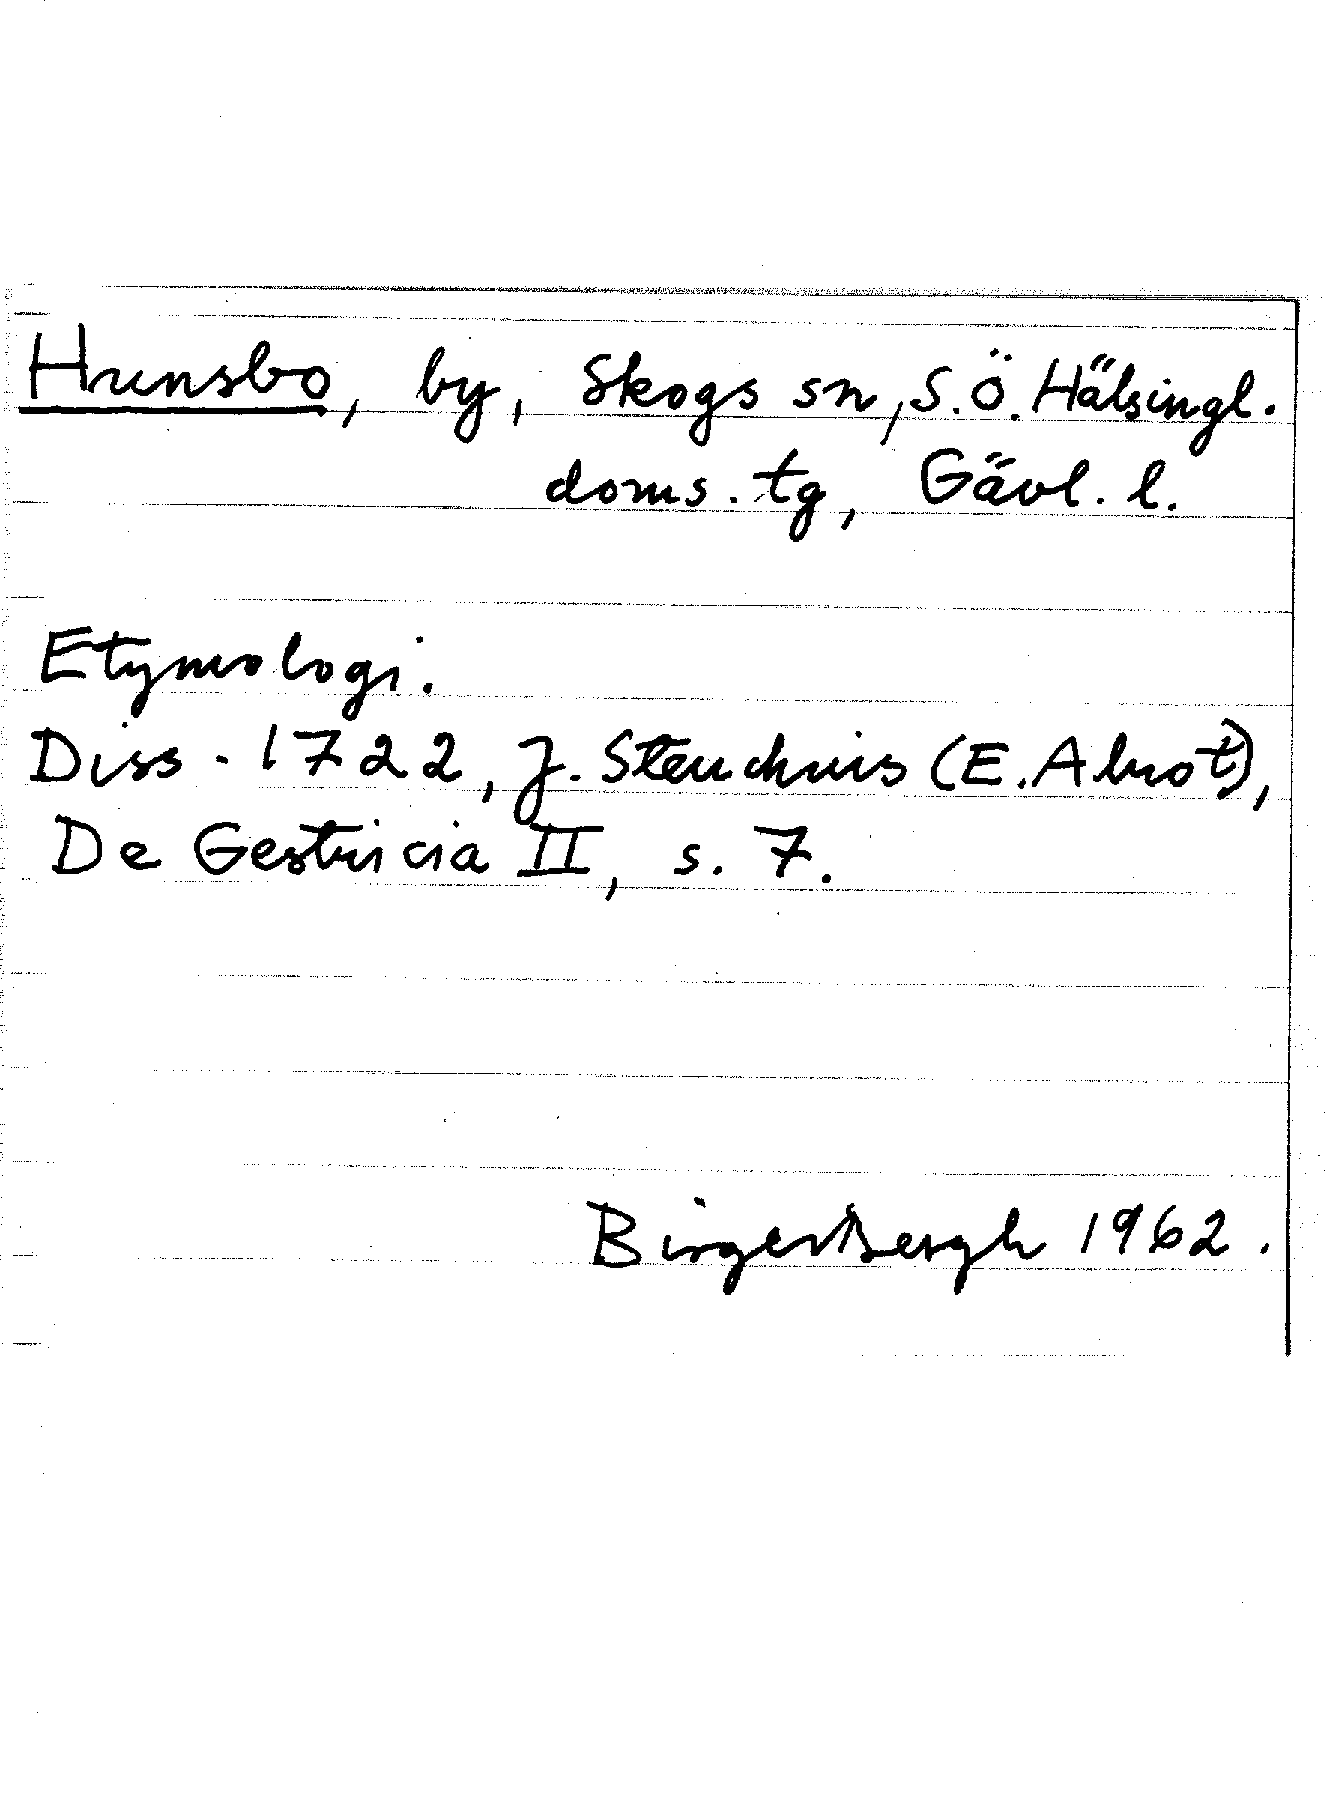 Hunsbo, by, Skogs sn, S.Ö. Hälsingl.
doms. tg, Gävl. l.
Etymologi.
Diss. 1722, J. Steuchius (E. Alrot),
De Gestricia II, s. 7.
Birger Bergh 1962.